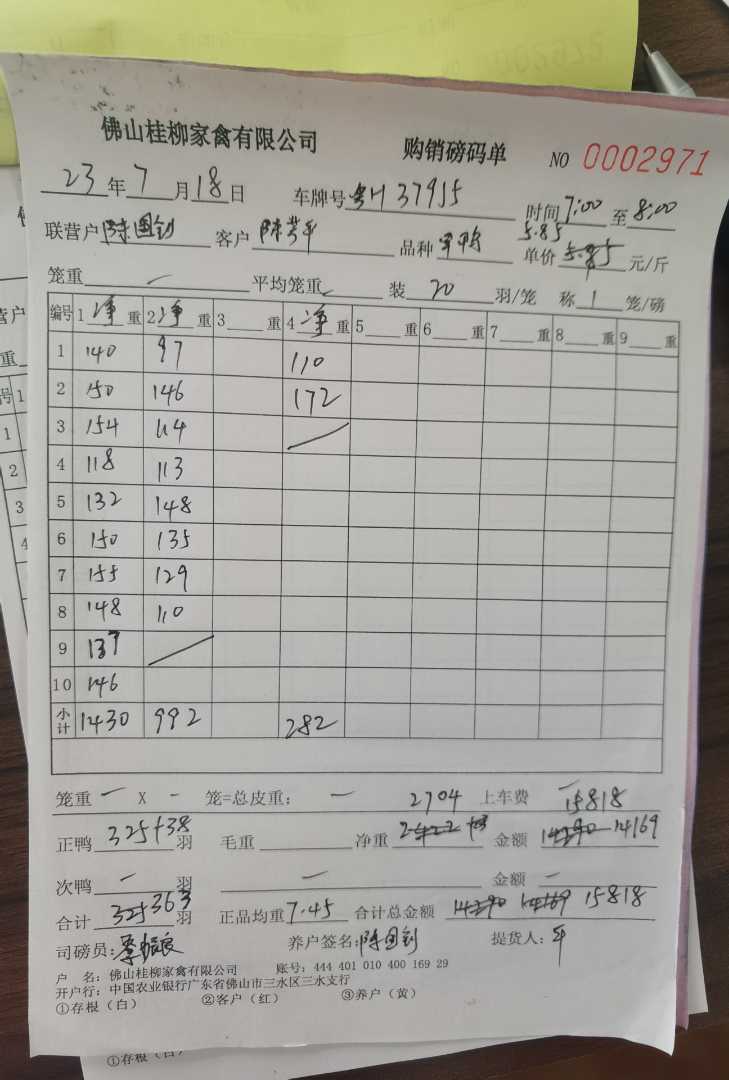 佛山桂柳家禽有限公司 购销磅码单 NO 0002971
23年7月18日 车牌号粤H37915 时间7:00至8:00
联营户陈国钊 客户 品种 5.85 单价5.85元/斤
笼重— 平均笼重 装20羽/笼 称1笼/磅
编号 1净重 2净重 3重 4净重 5重 6重 7重 8重 9重
1 140 97 110
2 150 146 172
3 154 114
4 118 113
5 132 148
6 150 135
7 155 129
8 148 110
9 137
10 146
小计 1430 992 282
笼重— X - 笼=总皮重: — 2704 上车费 — 15818
正鸭325+38羽 毛重 净重2422 金额14290 14169
次鸭—羽 — 金额—
合计325 363羽 正品均重7.45 合计总金额14290 14169 15818
司磅员:李振良 养户签名:陈国钊 提货人:平
户 名:佛山桂柳家禽有限公司 账号:444 401 010 400 169 29
开户行:中国农业银行广东省佛山市三水区三水支行
①存根(白) ②客户(红) ③养户(黄)
①存根(白)